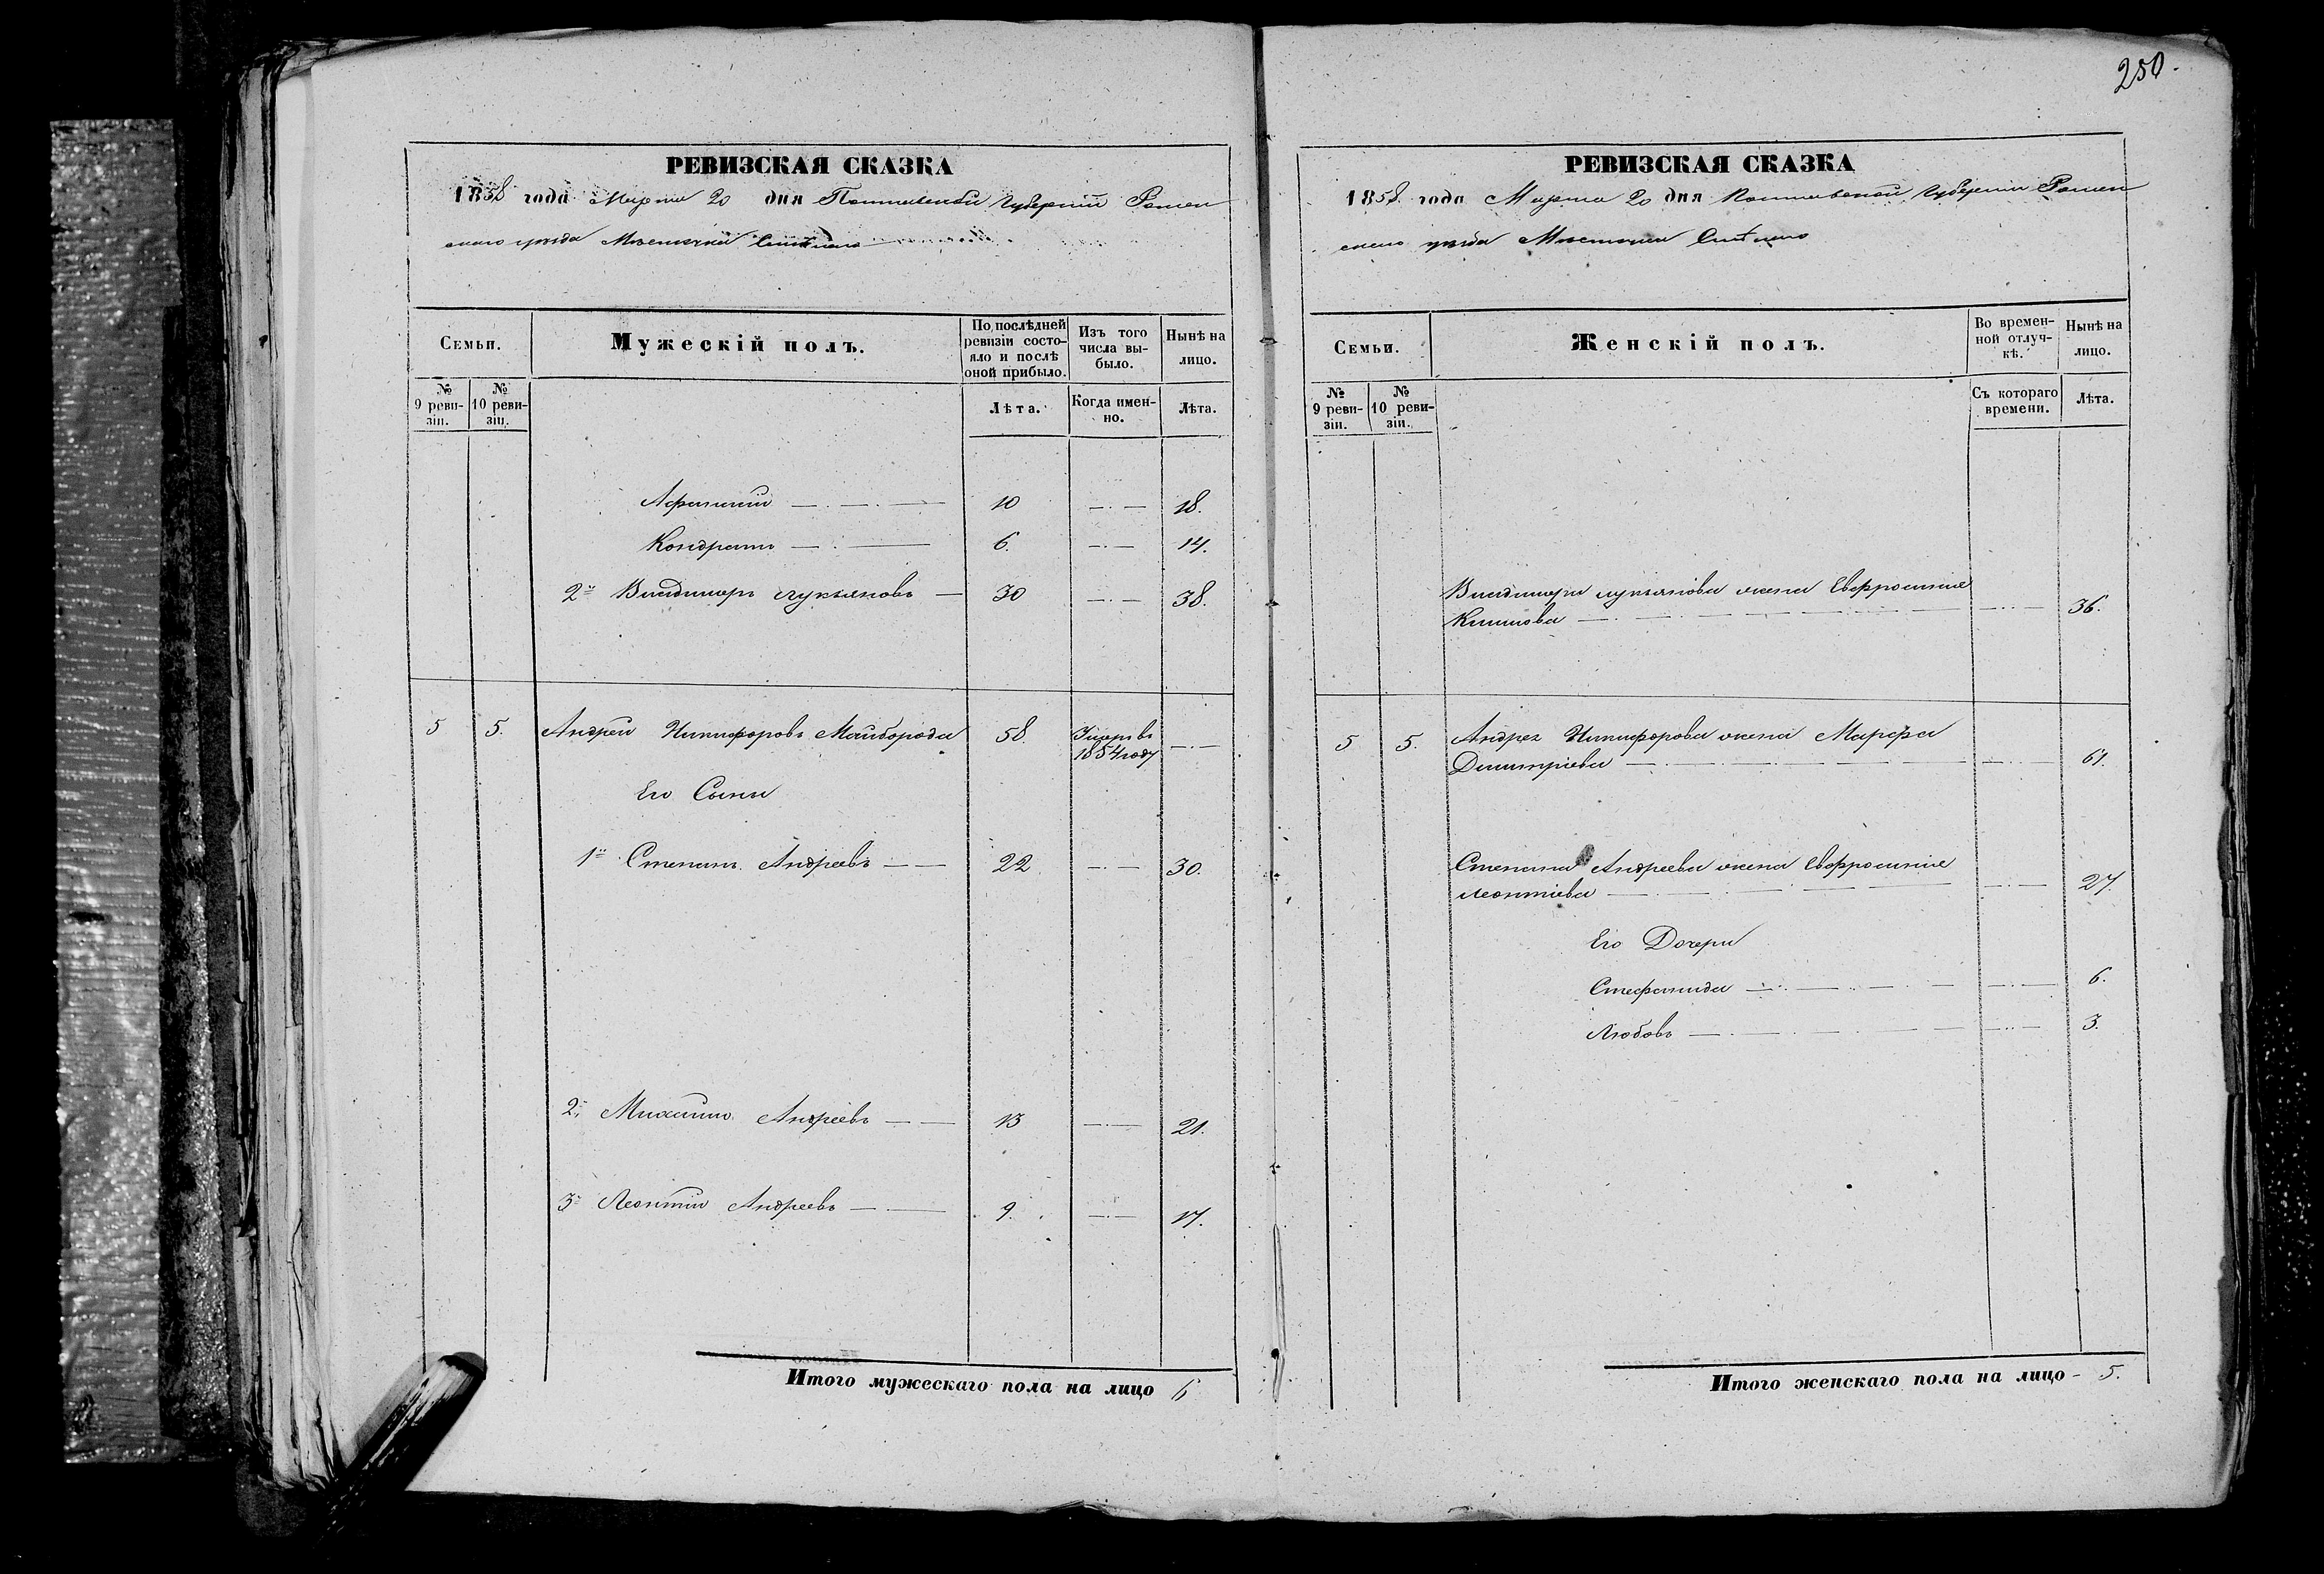 250.
РЕВИЗСКАЯ СКАЗКА
1858 года Марта 20 дня Полтавской Губерніи Ромен
скаго уѣзда Мѣстечка Смѣлаго
Семьи.
Мужескій полъ.
По послѣдней ревизіи состояло и послѣ оной прибыло.
Изъ того числа выбыло.
Нынѣ на лицо.
№ 9 ревизіи.
№ 10 ревизіи.
Лѣта.
Когда именно.
Лѣта.
Афанасій 10 18.
Кондратъ 6. 14.
2й Владимиръ Лукьяновъ 30 38.
5 5. Андрей Никифоровъ Майборода 58 Умеръ въ
1854 году
Его Сыны
1й Степанъ Андреевъ 22 30.
2й Михаилъ Андреевъ 13 21.
3й Леонтій Андреевъ 9. 17.
Итого мужескаго пола на лицо 6
РЕВИЗСКАЯ СКАЗКА
1858 года Марта 20 дня Полтавской Губерніи Ромен
скаго уѣзда Мѣстечка Смѣлаго
Семьи.
Женскій полъ.
Во временной отлучкѣ.
Нынѣ на лицо.
№ 9 ревизіи.
№ 10 ревизіи.
Съ котораго времени.
Лѣта.
Владимира Лукьянова жена Евфросинія
36.
5 5. Андрея Никифорова жена Марфа
Димитріева 61.
Степана Андреева жена Евфросинія
Леонтіева 27.
Его Дочери
Стефанида 6.
Любовь 3.
Итого женскаго пола на лицо - 5.